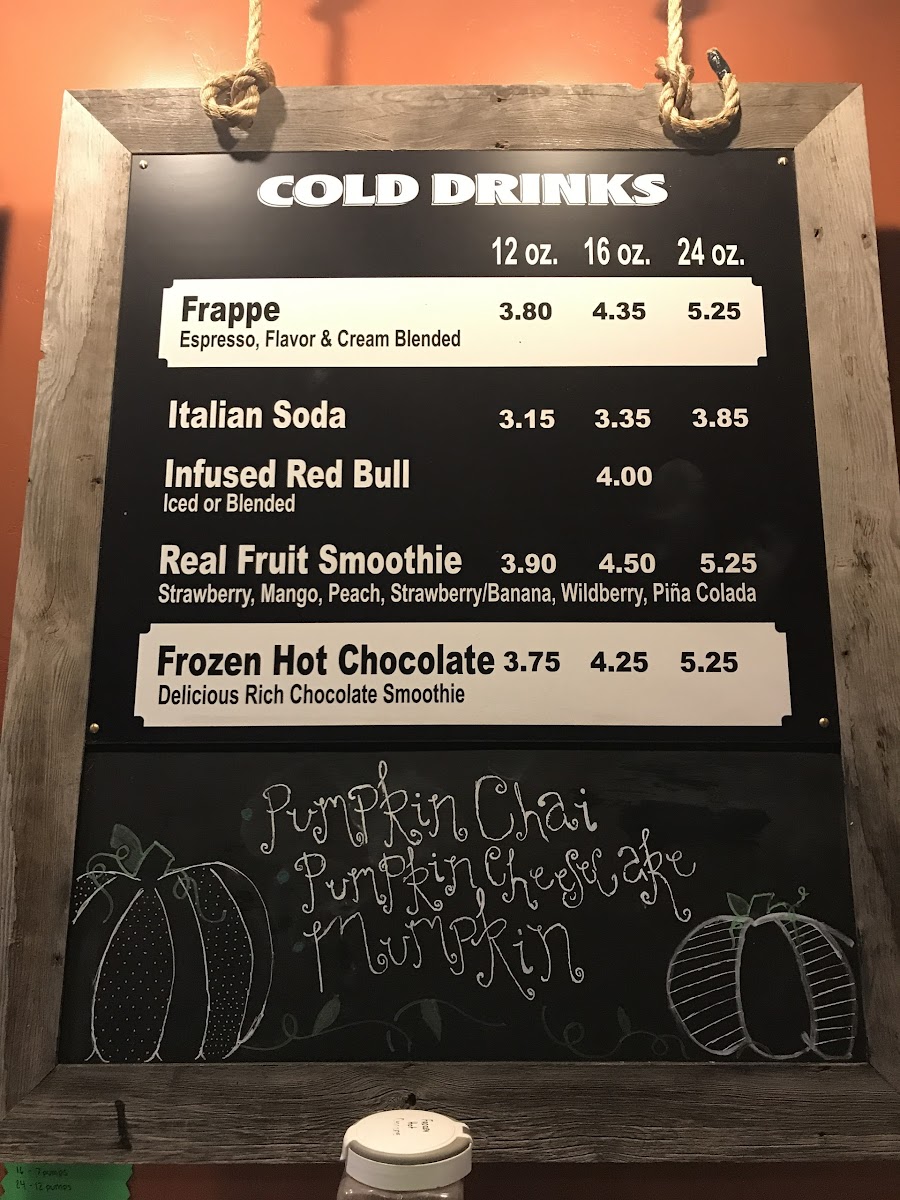 COLD DRINKS
12 oz. 16 oz. 24 oz.
Frappe 3.80 4.35 5.25
Espresso, Flavor & Cream Blended
Italian Soda 3.15 3.35 3.85
Infused Red Bull 4.00
Iced or Blended
Real Fruit Smoothie 3.90 4.50 5.25
Strawberry, Mango, Peach, Strawberry/Banana, Wildberry, Piña Colada
Frozen Hot Chocolate 3.75 4.25 5.25
Delicious Rich Chocolate Smoothie
Pumpkin Chai
Pumpkin Cheesecake
Mumpkin
16 - 9 pumps
24 - 12 pumps